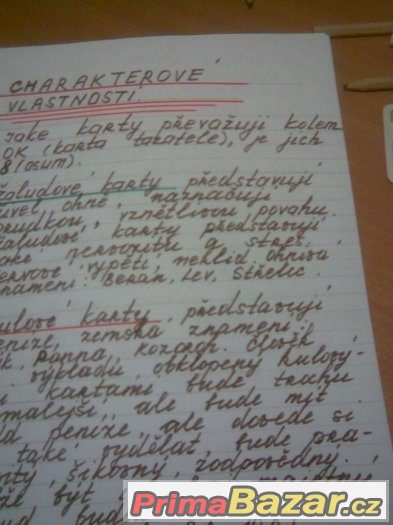 CHARAKTEROVÉ
VLASTNOSTI.
Jaké karty převažují kolem
OK (karta tazatele), je jich
8 (osum).
žaludové karty představují
živel ohně, naznačují
prudkou, vznětlivou povahu.
žaludové karty představují
také nervozitu a stres.
nervové vypětí, neklid ohnivá
znamení: BERAN, Lev, Střelec.
kulové karty, představují
peníze, zemská znamení.
panna, kozoroh. Člověk
výkladu, obklopený kulový-
i kartami bude trochu
pomalejší, ale bude mít
peníze, ale dovede si
také vydělat, bude pra-
šikovný, zodpovědný.
být
bude
PrimaBazar.cz